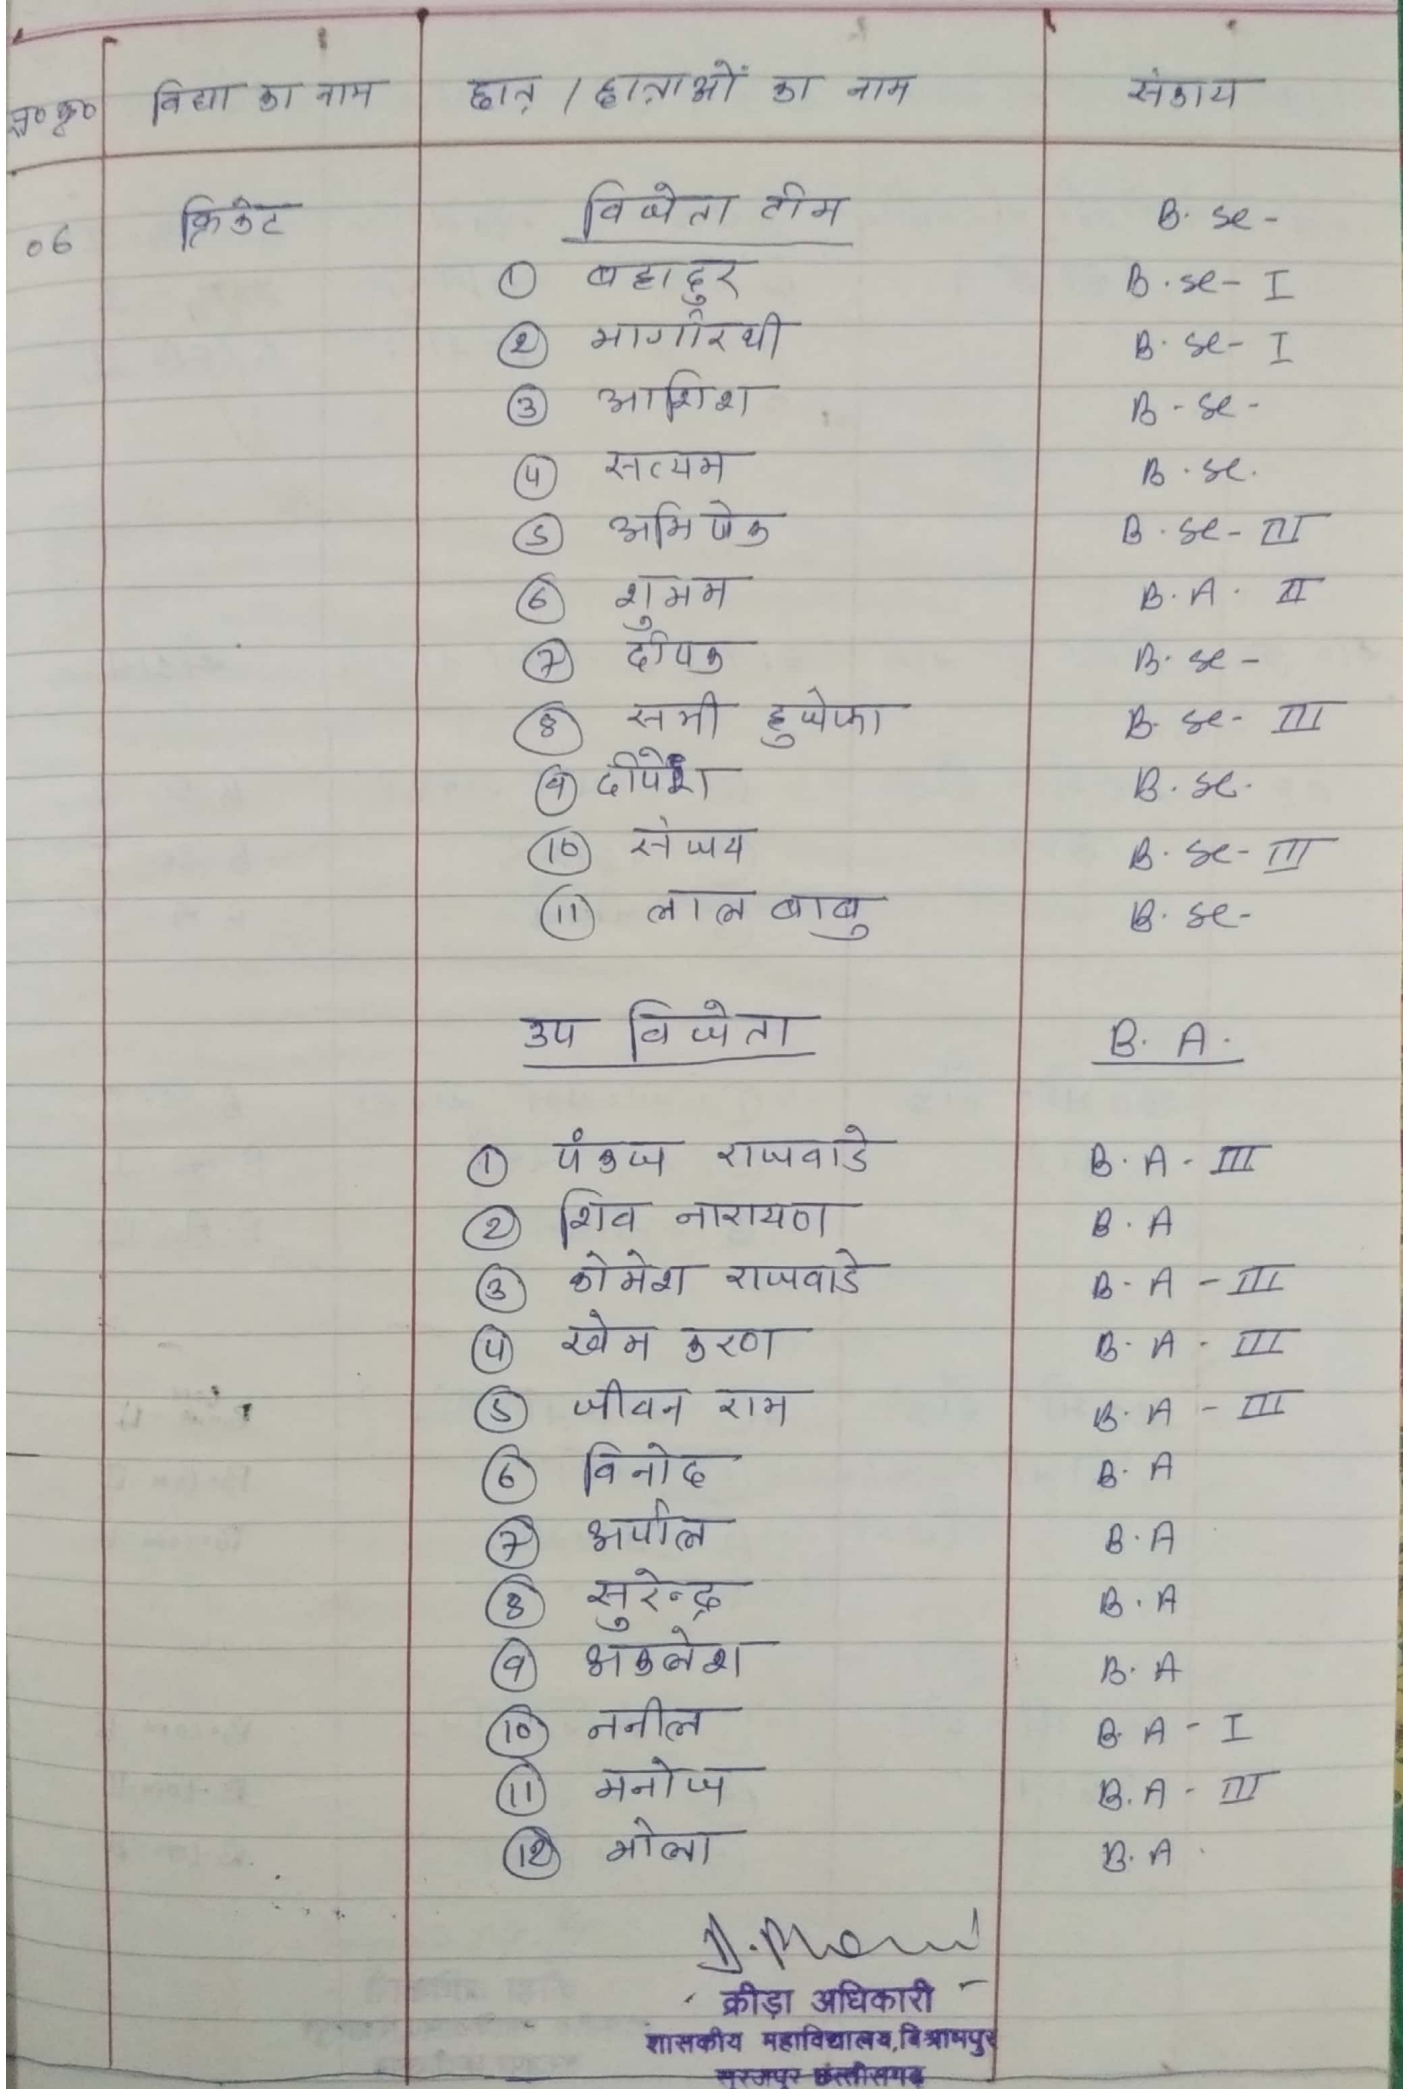 स० क्र० विद्या का नाम छात्र / छात्राओं का नाम संकाय
06 क्रिकेट विजेता टीम B. Sc -
① बहादुर B. Sc - I
② भागीरथी B. Sc - I
③ आशिश B - Sc -
④ सत्यम B . Sc .
⑤ अभिषेक B . Sc - III
⑥ शुभम B. A. II
⑦ दीपक B. Sc -
⑧ समी हुजेफा B. Sc - III
⑨ दीपेश B. Sc.
⑩ संजय B. Sc - III
⑪ लाल बाबु B. Sc -
उप विजेता B. A.
① पंकज राजवाडे B. A - III
② शिव नारायण B. A
③ कोमेश राजवाडे B - A - III
④ खेम करण B. A - III
⑤ जीवन राम B. A - III
⑥ विनोद B. A
⑦ अर्पाल B. A
⑧ सुरेन्द्र B. A
⑨ अकलेश B. A
⑩ ननील B. A - I
⑪ मनोज B. A - III
⑫ भोला B. A.
क्रीड़ा अधिकारी
शासकीय महाविद्यालय, विश्रामपुर
सूरजपुर छत्तीसगढ़